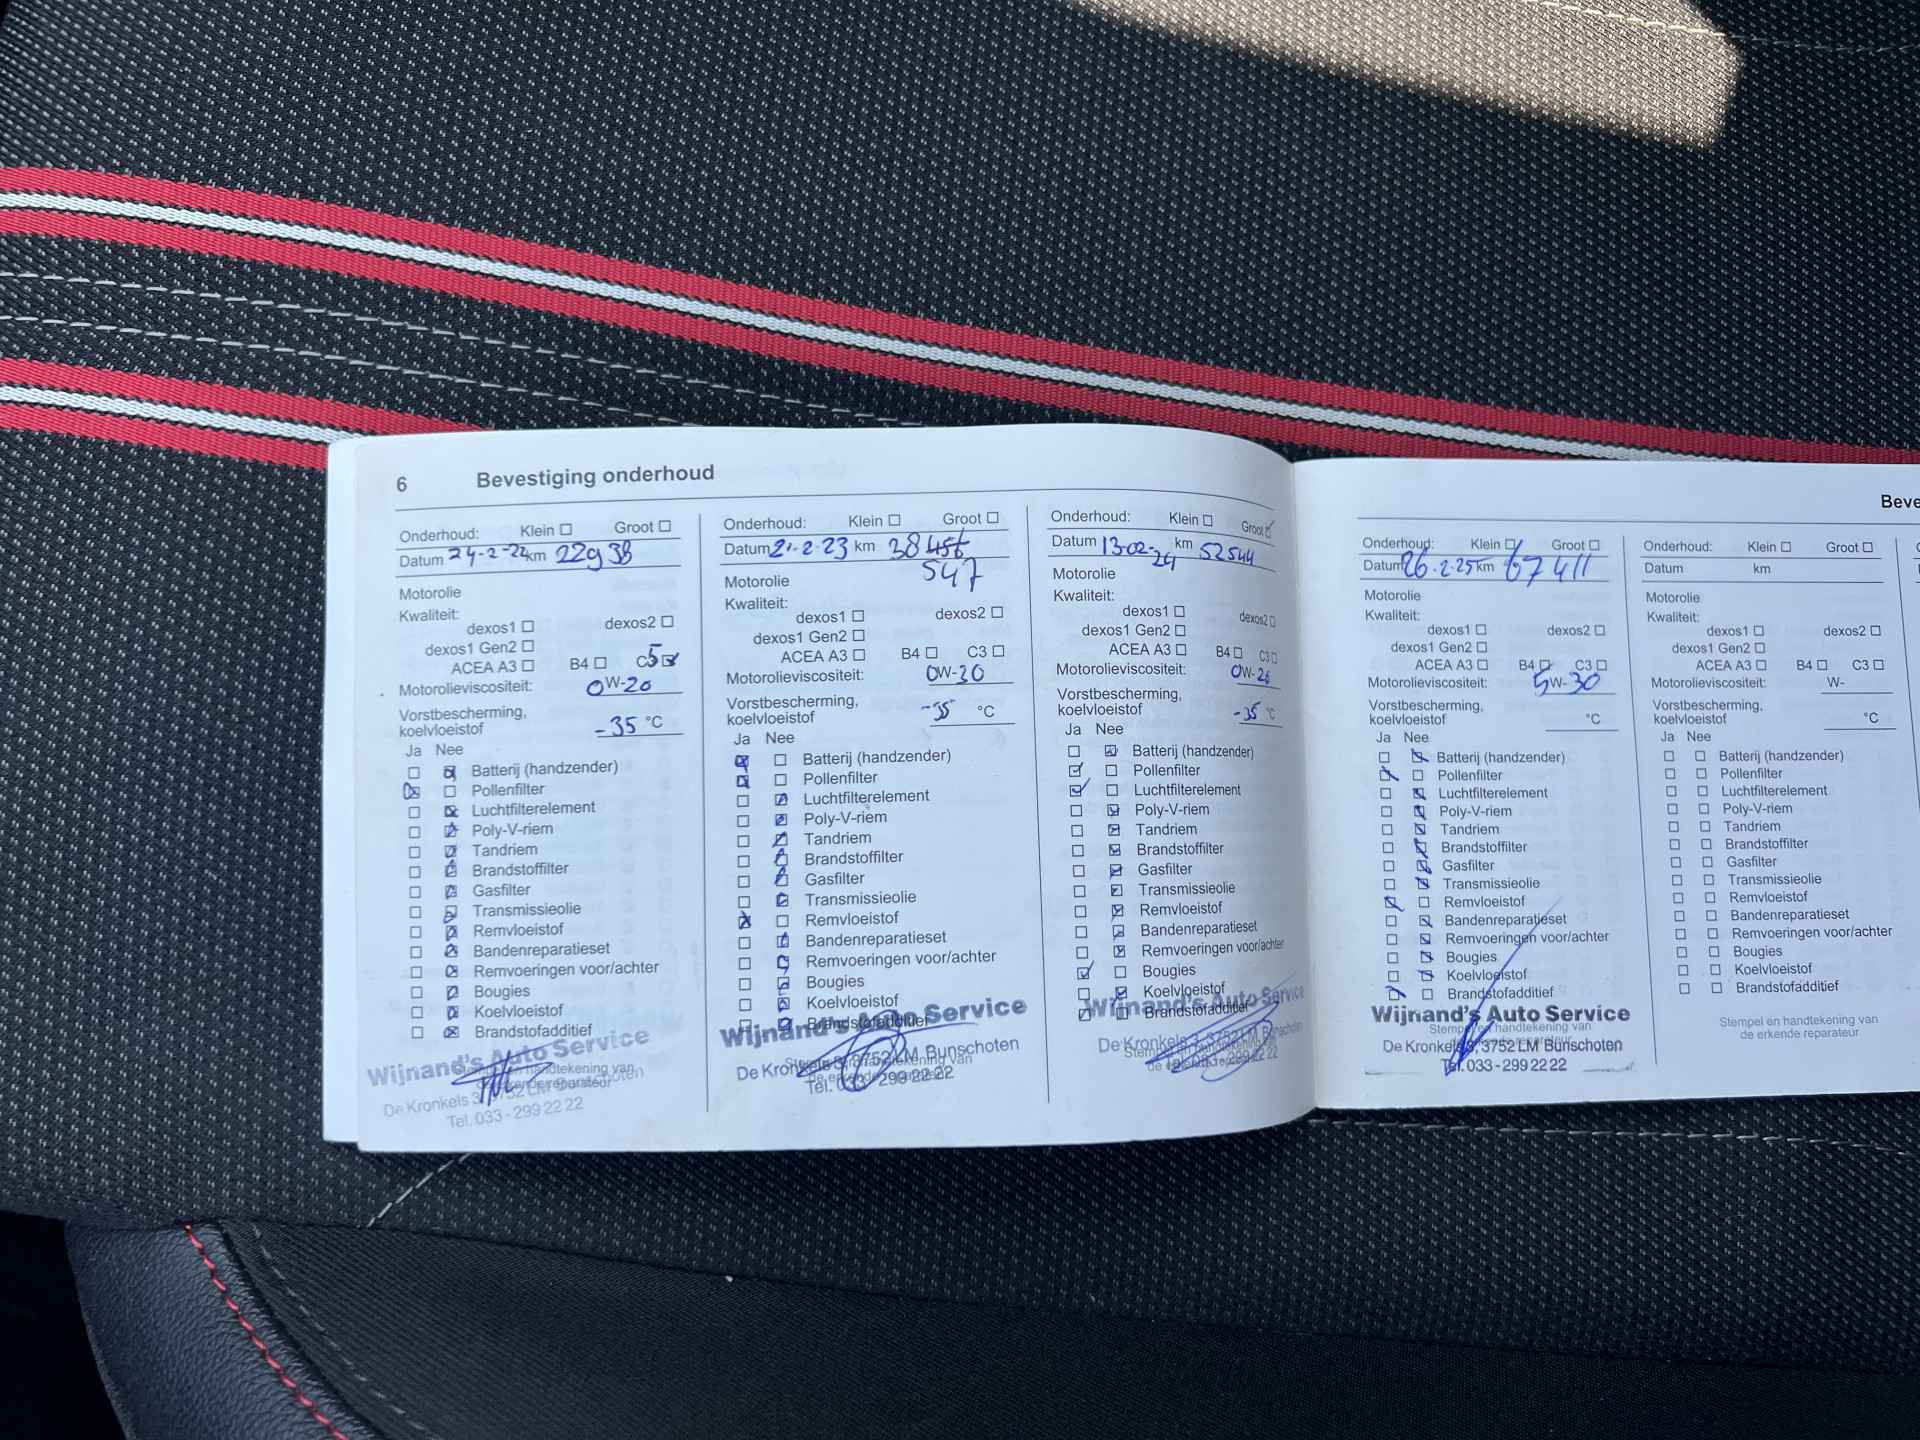 6 Bevestiging onderhoud
Onderhoud: Klein Groot
Datum 24-2-22 km 22938
Motorolie
Kwaliteit:
dexos1 dexos2
dexos1 Gen2
ACEA A3 B4 C5
Motorolieviscositeit: 0W-20
Vorstbescherming,
koelvloeistof -35 °C
Ja Nee
Batterij (handzender)
Pollenfilter
Luchtfilterelement
Poly-V-riem
Tandriem
Brandstoffilter
Gasfilter
Transmissieolie
Remvloeistof
Bandenreparatieset
Remvoeringen voor/achter
Bougies
Koelvloeistof
Brandstofadditief
Wijnand's Auto Service
Stempel en handtekening van
de erkende reparateur
De Kronkels 3, 3752 LM Bunschoten
Tel. 033 - 299 22 22
Onderhoud: Klein Groot
Datum 21-2-23 km 38456
547
Motorolie
Kwaliteit:
dexos1 dexos2
dexos1 Gen2
ACEA A3 B4 C3
Motorolieviscositeit: 0W-30
Vorstbescherming,
koelvloeistof -35 °C
Ja Nee
Batterij (handzender)
Pollenfilter
Luchtfilterelement
Poly-V-riem
Tandriem
Brandstoffilter
Gasfilter
Transmissieolie
Remvloeistof
Bandenreparatieset
Remvoeringen voor/achter
Bougies
Koelvloeistof
Brandstofadditief
Wijnand's Auto Service
Stempel en handtekening van
De Kronkels 3, 3752 LM Bunschoten
de erkende reparateur
Tel. 033 - 299 22 22
Onderhoud: Klein Groot
Datum 13-02-24 km 52544
Motorolie
Kwaliteit:
dexos1 dexos2
dexos1 Gen2
ACEA A3 B4 C3
Motorolieviscositeit: 0W-20
Vorstbescherming,
koelvloeistof -35 °C
Ja Nee
Batterij (handzender)
Pollenfilter
Luchtfilterelement
Poly-V-riem
Tandriem
Brandstoffilter
Gasfilter
Transmissieolie
Remvloeistof
Bandenreparatieset
Remvoeringen voor/achter
Bougies
Koelvloeistof
Brandstofadditief
Wijnand's Auto Service
De Kronkels 3, 3752 LM Bunschoten
Stempel en handtekening van
de erkende reparateur
Tel. 033 - 299 22 22
Beve
Onderhoud: Klein Groot
Datum 26-2-25 km 67411
Motorolie
Kwaliteit:
dexos1 dexos2
dexos1 Gen2
ACEA A3 B4 C3
Motorolieviscositeit: 5W-30
Vorstbescherming,
koelvloeistof °C
Ja Nee
Batterij (handzender)
Pollenfilter
Luchtfilterelement
Poly-V-riem
Tandriem
Brandstoffilter
Gasfilter
Transmissieolie
Remvloeistof
Bandenreparatieset
Remvoeringen voor/achter
Bougies
Koelvloeistof
Brandstofadditief
Wijnand's Auto Service
Stempel en handtekening van
de erkende reparateur
De Kronkels 3, 3752 LM Bunschoten
Tel. 033 - 299 22 22
Onderhoud: Klein Groot
Datum km
Motorolie
Kwaliteit:
dexos1 dexos2
dexos1 Gen2
ACEA A3 B4 C3
Motorolieviscositeit: W-
Vorstbescherming,
koelvloeistof °C
Ja Nee
Batterij (handzender)
Pollenfilter
Luchtfilterelement
Poly-V-riem
Tandriem
Brandstoffilter
Gasfilter
Transmissieolie
Remvloeistof
Bandenreparatieset
Remvoeringen voor/achter
Bougies
Koelvloeistof
Brandstofadditief
Stempel en handtekening van
de erkende reparateur